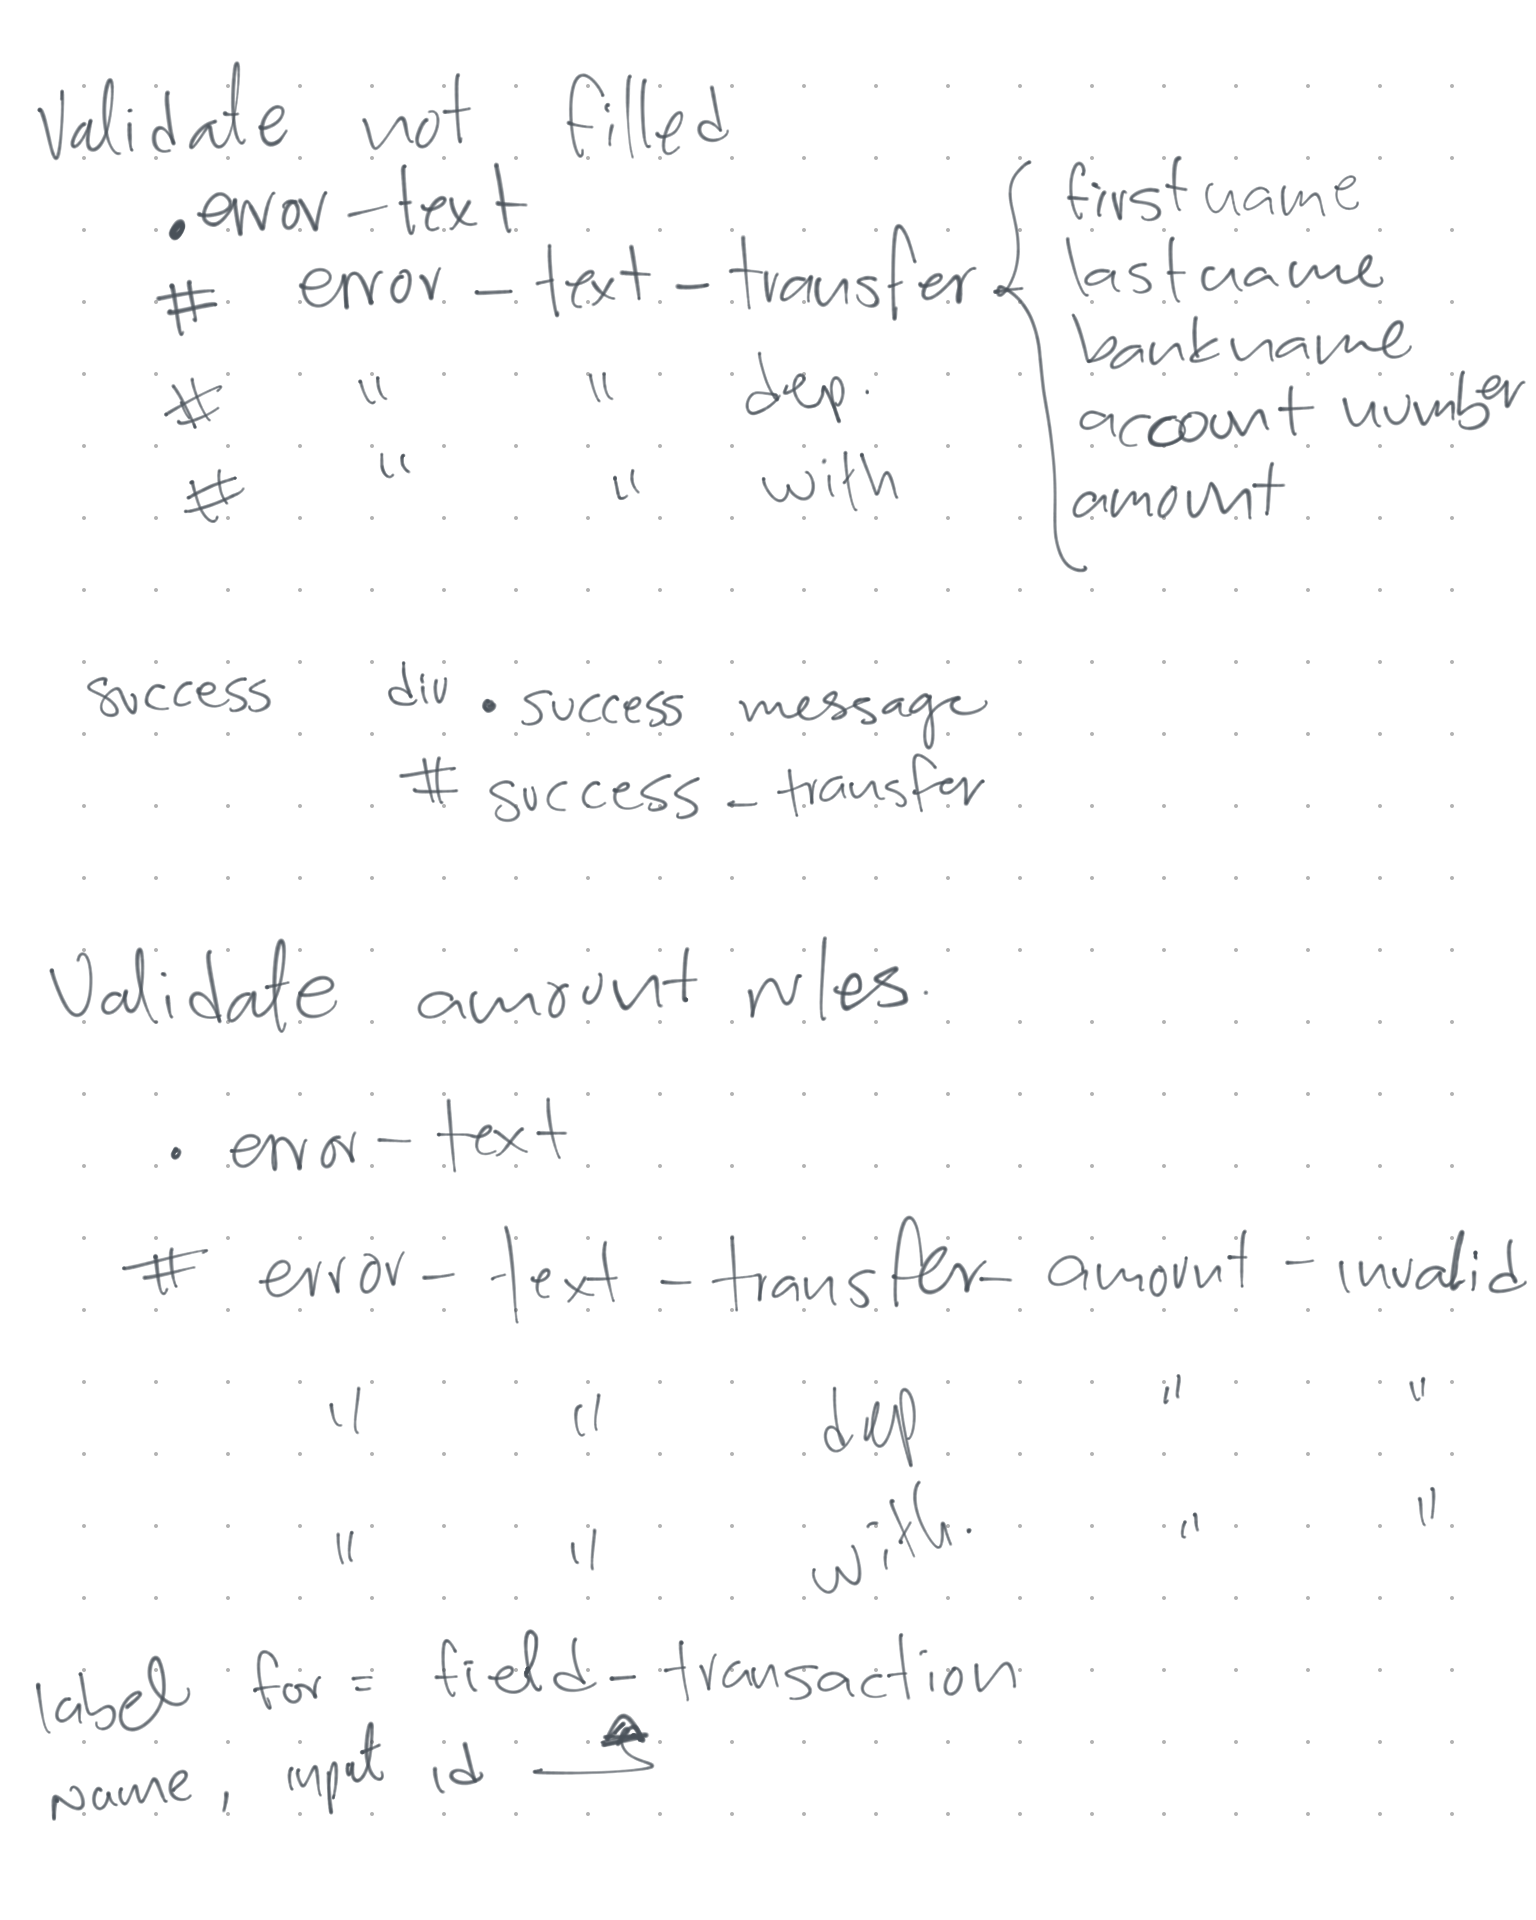 Validate not filled
.error-text
# error-text-transfer
firstname
lastname
bankname
account number
amount
# " " dep.
# " " with
success div .success message
# success-transfer
Validate amount rules.
. error-text
# error-text-transfer-amount-invalid
" " dep " "
" " with. " "
label for = field-transaction
name, input id